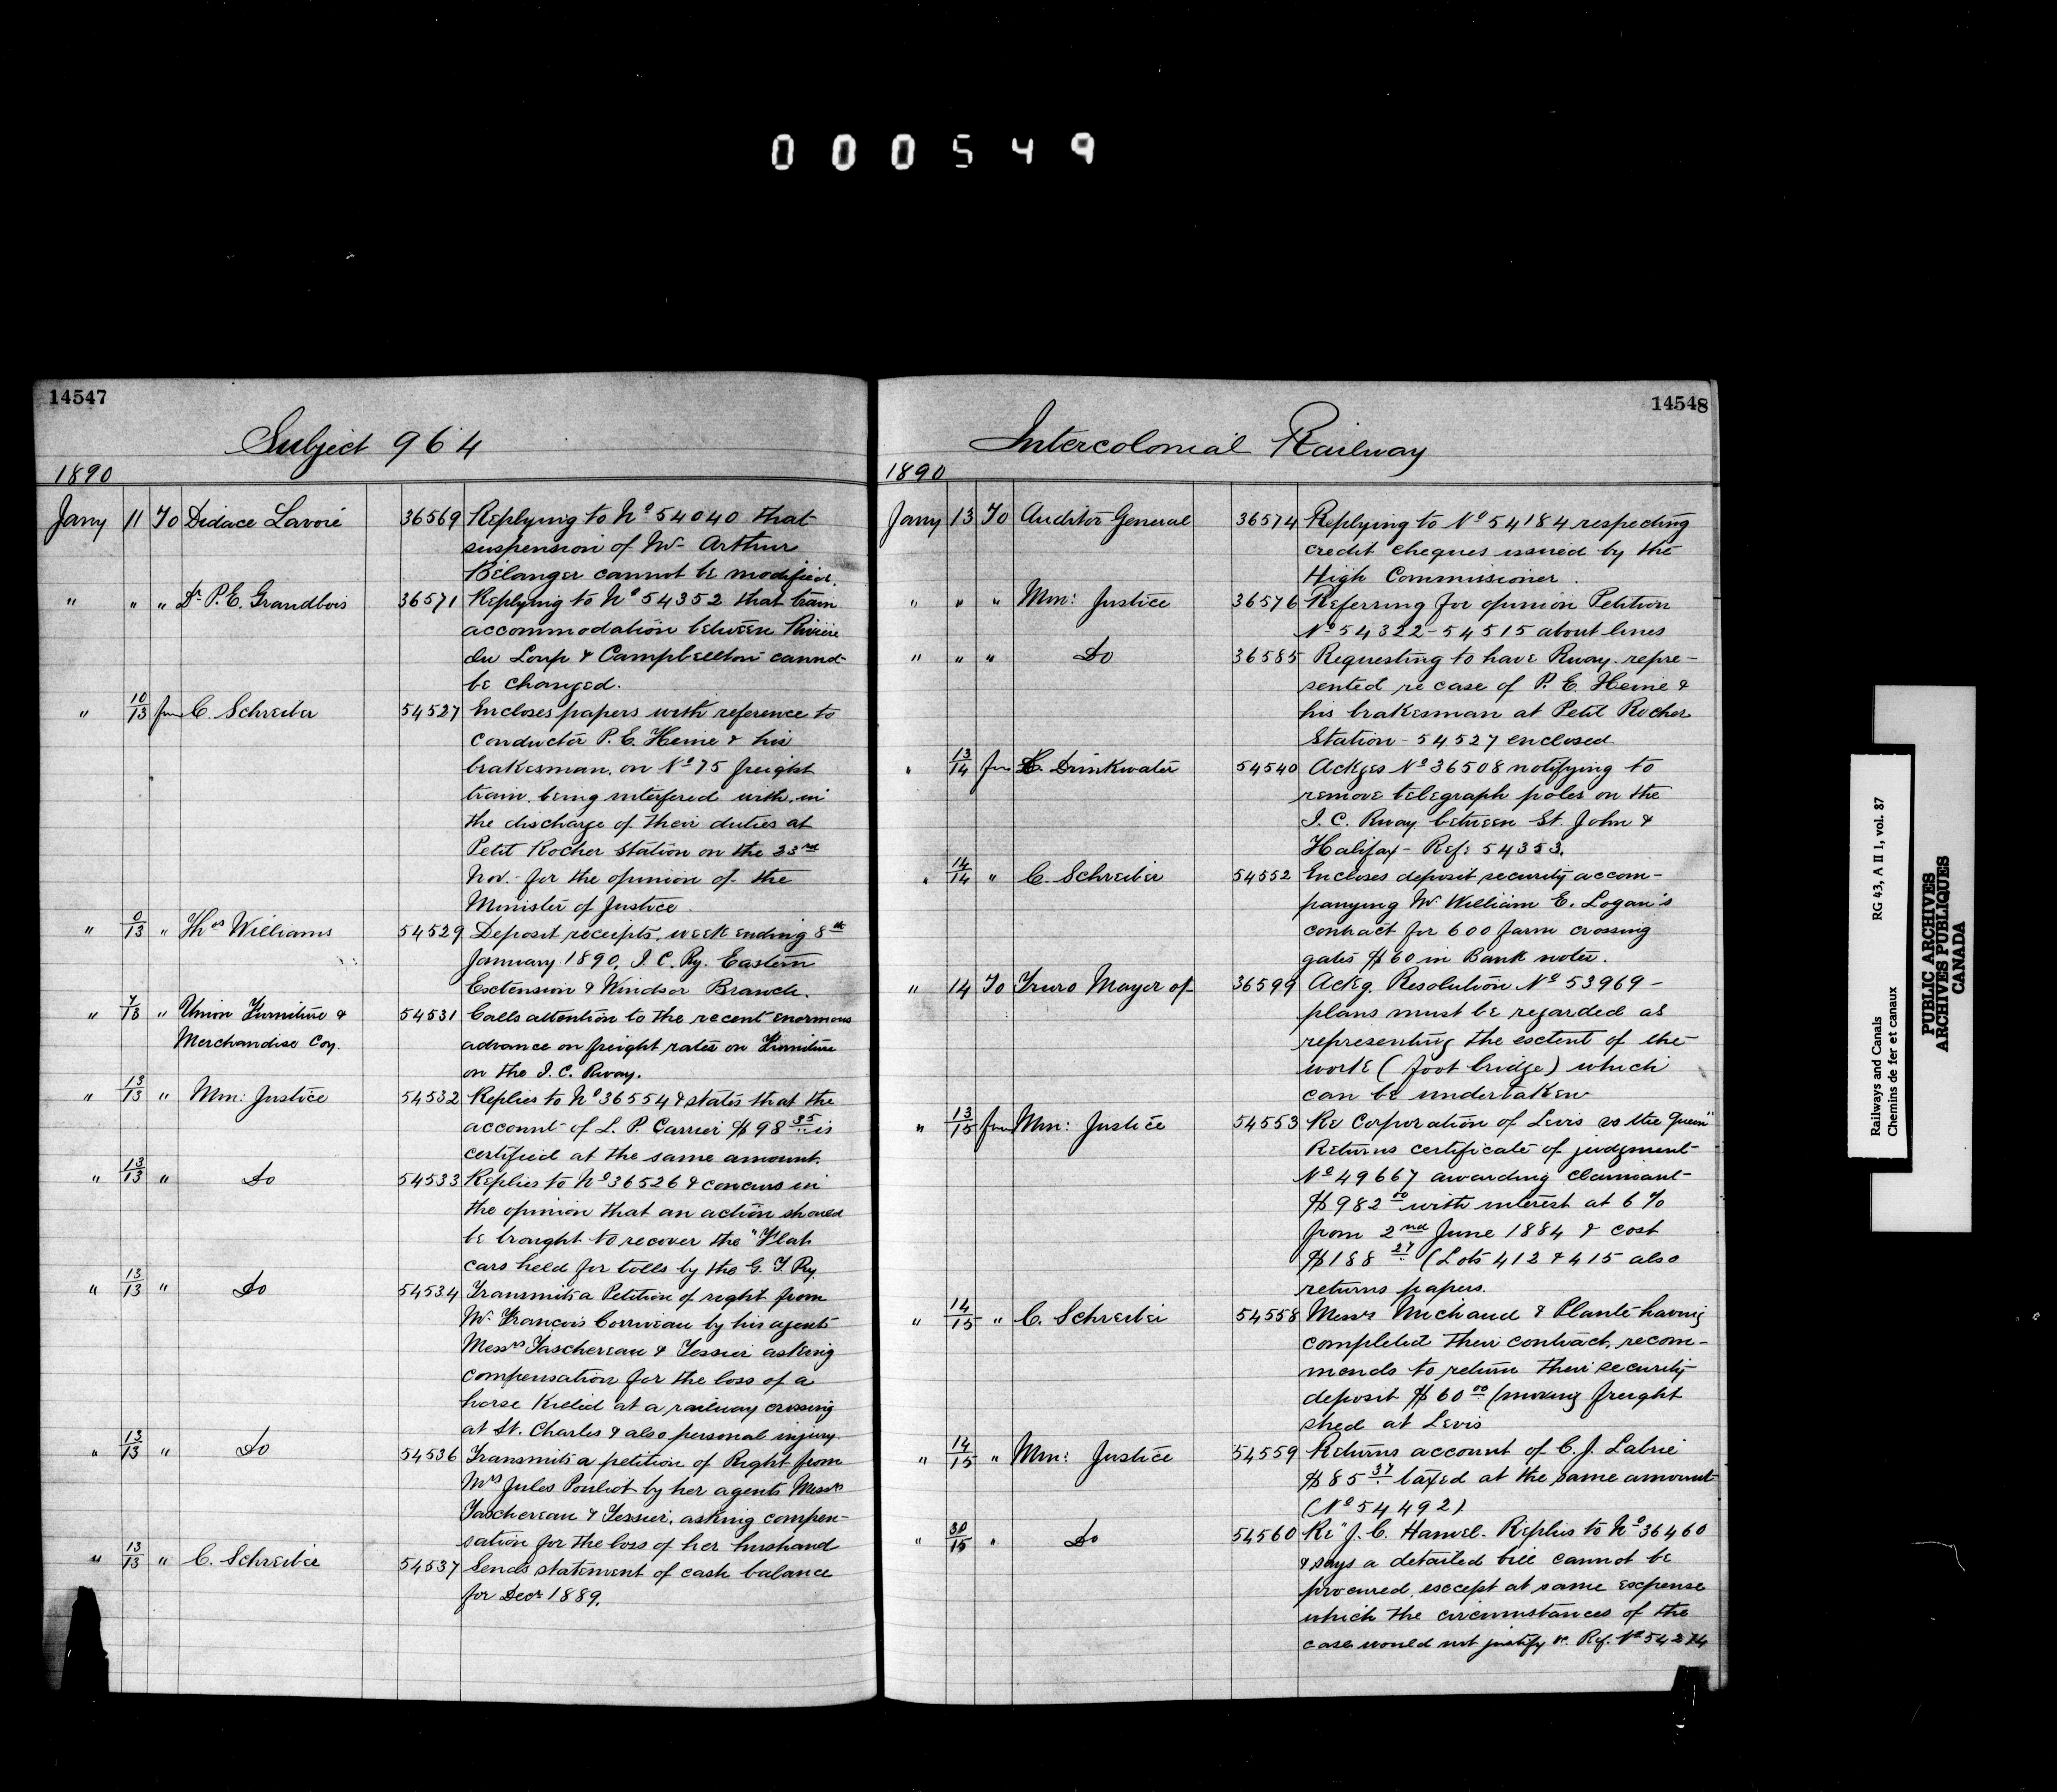 000549
14547
Subject 964
1890
Jany 11 To Didace Lavoie 36569 Replying to No 54040 that
suspension of Mr Arthur
Bélanger cannot be modified.
" " " Dr P.E. Grandbois 36571 Replying to No 54352 that train
accommodation between Riviere
du Loup & Campbellton cannot
be changed.
" 10/13 from C. Schreiber 54527 Encloses papers with reference to
conductor P.E. Heine & his
brakesman, on No 75 freight
train, being interfered with in
the discharge of their duties at
Petit Rocher Station on the 23rd
Nov. for the opinion of the
Minister of Justice.
" 0/13 " Thos Williams 54529 Deposit receipts, week ending 8th
January 1890, I.C. Ry. Eastern
Extension & Windsor Branch.
" 7/13 " Union Furniture & 54531 Calls attention to the recent enormous
Merchandise Coy. advance on freight rates on Furniture
on the I.C. Rway.
" 13/13 " Min: Justice 54532 Replies to No 36554 & states that the
account of L.P. Carrier $98 35 is
certified at the same amount.
" 13/13 " Do 54533 Replies to No 36526 & concurs in
the opinion that an action should
be brought to recover the "Flat
cars held for tolls by the G.T. Ry.
" 13/13 " Do 54534 Transmits a Petition of right from
Mr Francois Corriveau by his agents
Messrs Taschereau & Tessier asking
compensation for the loss of a
horse killed at a railway crossing
at St. Charles & also personal injury.
" 13/13 " Do 54536 Transmits a petition of Right from
Mrs Jules Pouliot by her agents Messrs
Taschereau & Tessier, asking compen-
sation for the loss of her husband
" 13/13 " C. Schreiber 54537 Sends statement of cash balance
for Decr 1889.
14548
Intercolonial Railway
1890
Jany 13 To Auditor General 36574 Replying to No 54184 respecting
credit cheques issued by the
High Commissioner.
" " " Min: Justice 36576 Referring for opinion Petition
No 54322-54515 about lines
" " " Do 36585 Requesting to have Rway. repre-
sented re case of P.E. Heine &
his brakesman at Petit Rocher
Station - 54527 enclosed.
" 13/14 from C. Drinkwater 54540 Ackges No 36508 notifying to
remove telegraph poles on the
I.C. Rway between St. John &
Halifax - Ref: 54353.
" 14/14 " C. Schreiber 54552 Encloses deposit security accom-
panying Mr William E. Logan's
contract for 600 farm crossing
gates $60 in Bank notes.
" 14 To Truro Mayor of 36599 Ackg. Resolution No 53969 -
plans must be regarded as
representing the extent of the
work (foot bridge) which
can be undertaken
" 13/15 from Min: Justice 54553 Re Corporation of Levis vs the Queen"
Returns certificate of judgment
No 49667 awarding claimant
$982 00 with interest at 6%
from 2nd June 1884 & cost
$188 27 (Lots 412 & 415 also
returns papers.
" 14/15 " C. Schreiber 54558 Messrs Michaud & Planté having
completed their contract, recom-
mends to return their security
deposit $60 00 (moving freight
shed at Levis
" 14/15 " Min: Justice 54559 Returns account of C.J. Labrie
$85 37 taxed at the same amount
(No 54492).
" 30/15 " Do 54560 Re "J.C. Hamel. Replies to No 36460
& says a detailed bill cannot be
procured except at some expense
which the circumstances of the
case would not justify Ref. No 54274
Railways and Canals RG 43, A II 1, vol. 87
Chemins de fer et canaux
PUBLIC ARCHIVES
ARCHIVES PUBLIQUES
CANADA